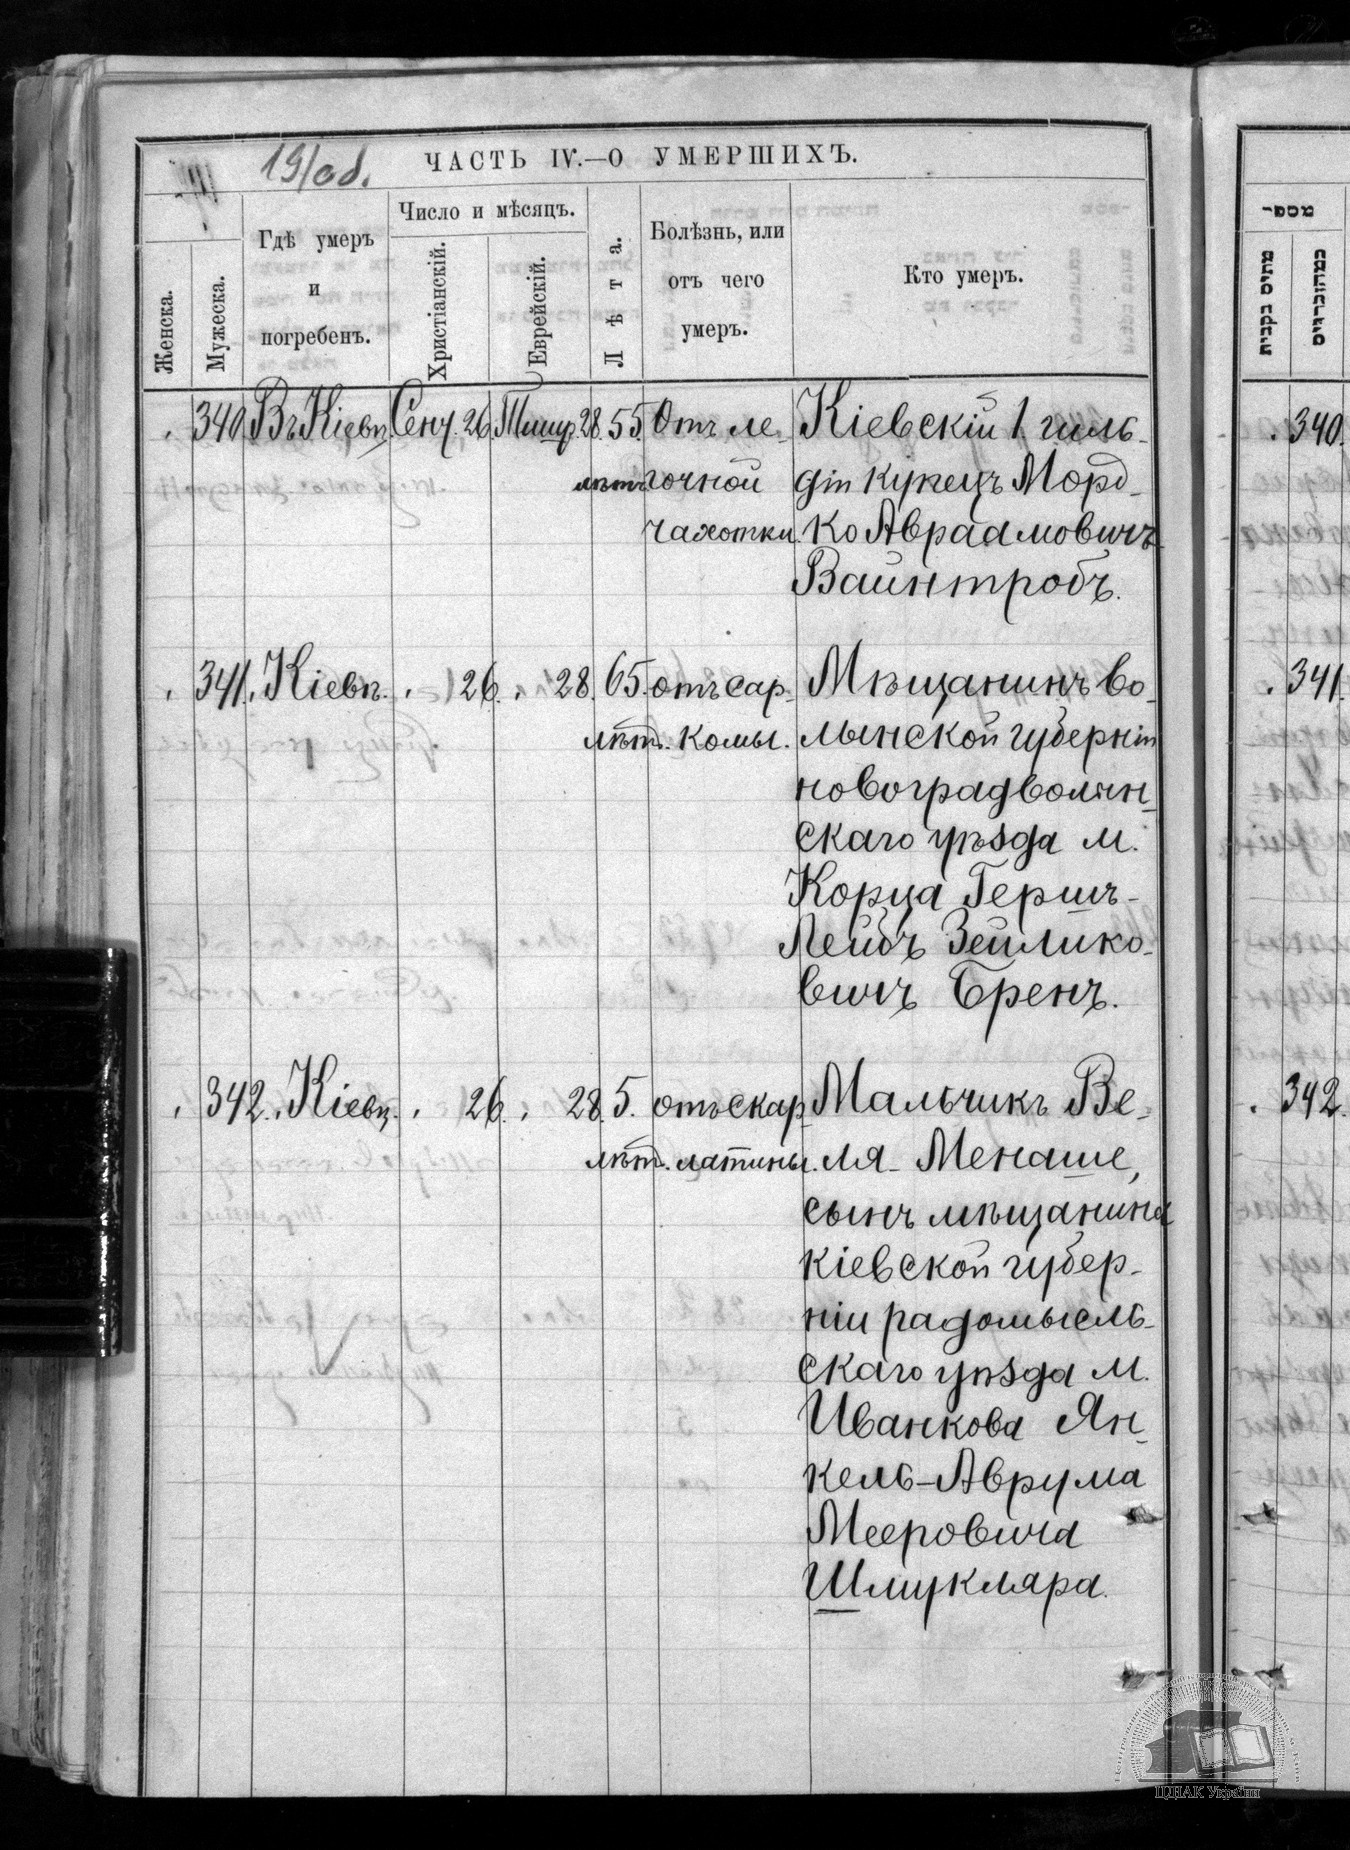 19/08.
ЧАСТЬ IV.—О УМЕРШИХЪ.
Женска.
Мужеска.
Гдѣ умеръ
и
погребенъ.
Число и мѣсяцъ.
Христіанскій.
Еврейскій.
Лѣта.
Болѣзнь, или
отъ чего
умеръ.
Кто умеръ.
מספר
מתים בקבית
340. Въ Кіевѣ. Сент. 26. Тишр. 28. 55. Отъ ле- Кіевскій 1. гиль-
лѣтъ гочной діи купецъ Морд-
чахотки. ко Авраамовичъ
Вайнтробъ.
341. Кіевѣ. 26. 28. 65. отъ сар- Мѣщанинъ во-
лѣт. комы. лынской губерніи
новоградволын-
скаго уѣзда м.
Корца Гершъ-
Лейбъ Зейлико-
вичъ Бренъ.
342. Кіевѣ. 26. 28. 5. отъ скар- Мальчикъ Ве-
лѣт. латины. ля-Менаше,
сынъ мѣщанина
кіевской губер-
ніи радомысль-
скаго уѣзда м.
Иванкова Ян-
кель-Аврума
Мееровича
Шмукляра.
340.
341.
342.
ЦДІАК України